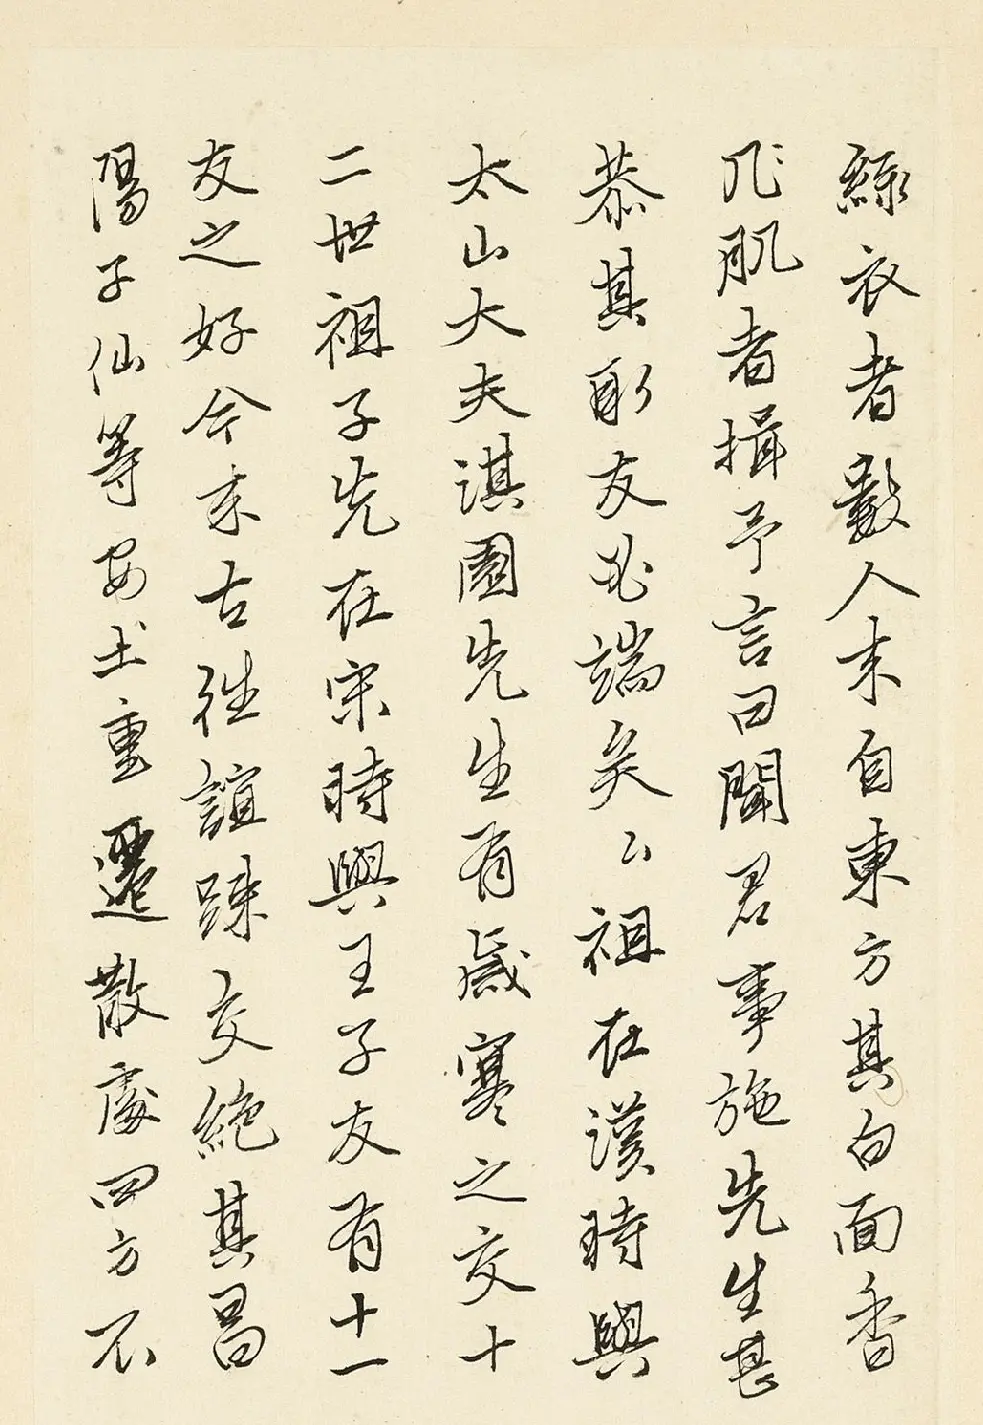 綠衣者數人來自東方其白面香
肌肌者揖予言曰聞君事施先生甚
恭其取友必端矣公祖在漢時與
太山大夫淇園先生有歲寒之交十
二世祖子先在宋時與王子友有十一
友之好今來古往誼疎交絕其昌
陽子仙等安土重遷散處四方不